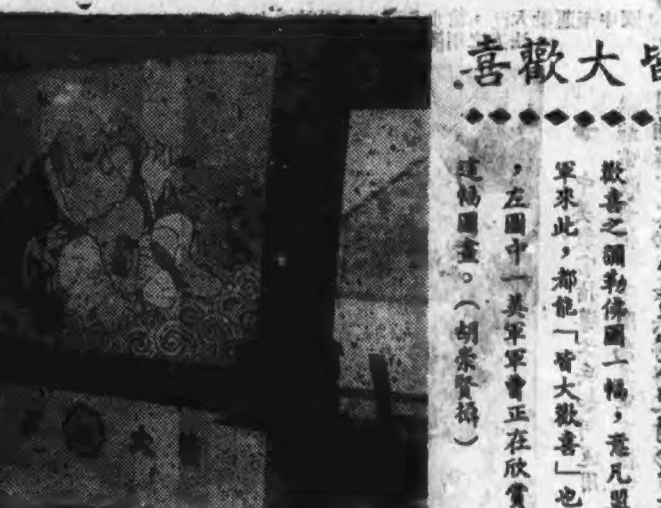 皆大歡喜
歡喜之彌勒佛圖一幅，意凡盟
軍來此，都能「皆大歡喜」也
，左圖中一美軍軍曹正在欣賞
這幅圖畫。（胡崇賢攝）